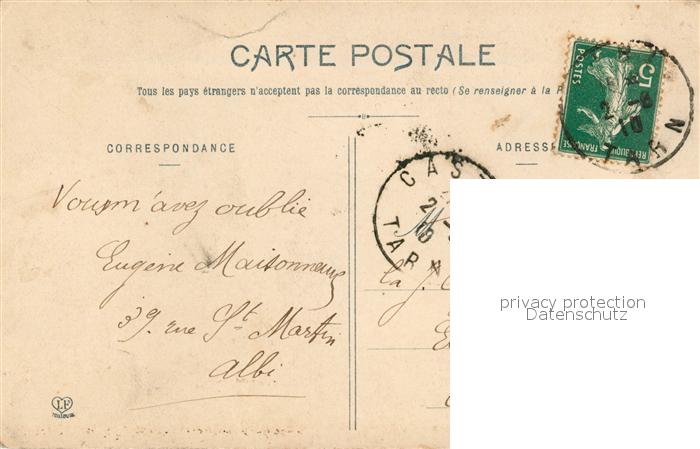 CARTE POSTALE
Tous les pays étrangers n'acceptent pas la correspondance au recto (Se renseigner à la
CORRESPONDANCE
ADRESSE
5
POSTES
REPUBLIQUE FRANÇAISE
TARN
CAS
TARN
Vous m'avez oublié
Eugène Maisonneuve
39. rue St Martin
Albi
la J.
LF
privacy protection
Datenschutz